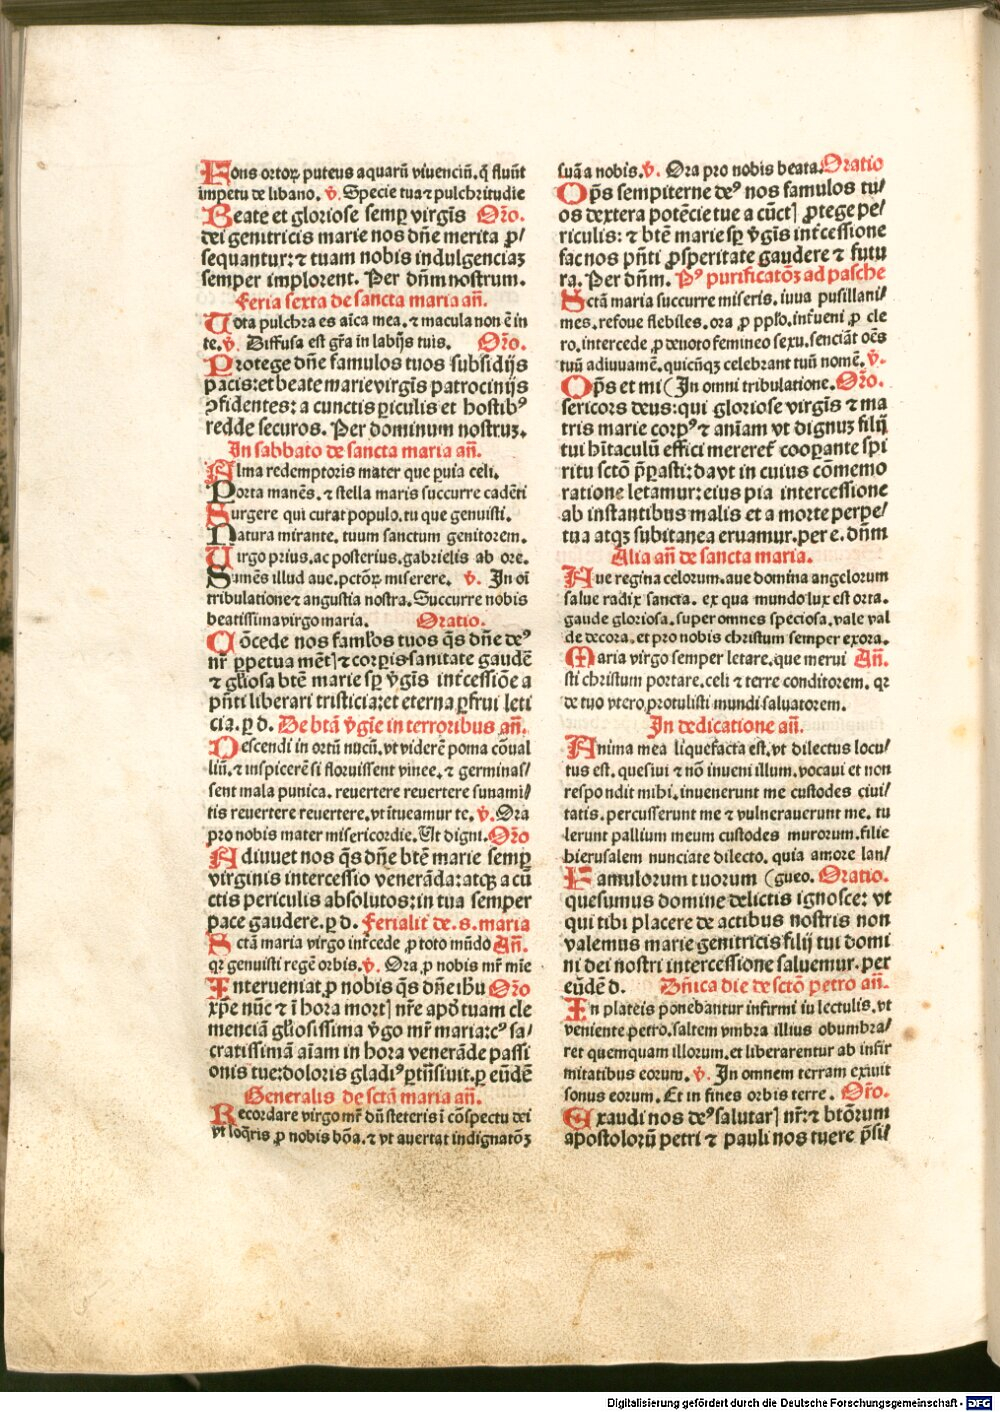 Fons ortoꝝ puteus aquarū viuenciū. q̄ fluūt
impetu de libano. v̄. Specie tua ⁊ pulchritudie
Beate et gloriose semꝑ virgīs Or̄o.
dei genitricis marie nos dn̄e merita ꝓ/
sequantur: ⁊ tuam nobis indulgenciaꝫ
semper implorent. Per dn̄m nostrum.
Feria sexta de sancta maria an̄.
Tota pulchra es aīca mea. ⁊ macula non ē in
te. v̄. Diffusa est gr̄a in labijs tuis. Or̄o.
Protege dn̄e famulos tuos subsidijs
pacis: et beate marie virgīs patrocinijs
ꝯfidentes: a cunctis ꝑiculis et hostibꝰ
redde securos. Per dominum nostruꝫ.
In sabbato de sancta maria an̄.
Alma redemptoris mater que ꝑuia celi.
Porta manēs. ⁊ stella maris succurre cadēti
Surgere qui curat populo. tu que genuisti.
Natura mirante. tuum sanctum genitorem.
Uirgo prius. ac posterius. gabrielis ab ore.
Sumēs illud aue. pctōꝝ miserere. v̄. In oī
tribulatione ⁊ angustia nostra. Succurre nobis
beatissima virgo maria. Oratio.
Cōcede nos famľos tuos q̄s dn̄e deꝰ
nr̄ ꝑpetua mēt⁊ ⁊ corꝑis sanitate gaudē
⁊ gľiosa btē marie sꝑ v̄gīs int̄cessiōe a
pn̄ti liberari tristicia: et eterna ꝑfrui leti
cia. ꝑ d. De btā v̄gīe in terroribus an̄.
Descendi in ortū nucū. vt viderē poma cōual
liū. ⁊ inspicerē si floruissent vinee. ⁊ germinas/
sent mala punica. reuertere reuertere sunami/
tis reuertere reuertere. vt ītueamur te. v̄. Ora
pro nobis mater misericordie. Ut digni. Or̄o
Adiuuet nos q̄s dn̄e btē marie semꝑ
virginis intercessio venerāda: atqꝫ a cū
ctis periculis absolutos: in tua semper
pace gaudere. ꝑ d. Ferialit̄ de. s. maria
Sctā maria virgo int̄cede ꝓ toto mūdo An̄.
qꝛ genuisti regē orbis. v̄. Ora ꝓ nobis mr̄ mīe
Interueniat ꝓ nobis q̄s dn̄e ihū Or̄o
xp̄e nūc ⁊ ī hora mort⁊ nr̄e apđ tuam cle
menciā gľiosissima v̄go mr̄ maria: cꝰ sa/
cratissimā aīam in hora venerāde passi
onis tue: doloris gladiꝰ ꝑtn̄siuit. ꝑ eūdē
Generalis de sctā maria an̄.
Recordare virgo mr̄ dū steteris ī cōspectu dei
vt loq̄ris ꝓ nobis bōa. ⁊ vt auertat indignatōꝫ
suā a nobis. v̄. Ora pro nobis beata. Oratio
Op̄s sempiterne deꝰ nos famulos tu/
os dextera potēcie tue a cūct⁊ ꝓtege pe/
riculis: ⁊ btē marie sꝑ v̄gīs int̄cessione
fac nos pn̄ti ꝓsperitate gaudere ⁊ futu
ra. Per dn̄m. Pꝰ purificatōꝫ ad pasche
Sctā maria succurre miseris. iuua pusillani/
mes. refoue flebiles. ora ꝓ ppľo. int̄ueni ꝓ cle
ro. intercede ꝓ deuoto femineo sexu. senciāt oēs
tuū adiuuamē. quicūqꝫ celebrant tuū nomē. v̄.
Op̄s et mi (In omni tribulatione. Or̄o.
sericors deus: qui gloriose virgīs ⁊ ma
tris marie corpꝰ ⁊ aīam vt dignuꝫ filij
tui hītaculū effici mereret̄ cooꝑante spi
ritu sctō p̄ꝑasti: da vt in cuius cōmemo
ratione letamur: eius pia intercessione
ab instantibus malis et a morte perpe/
tua atqꝫ subitanea eruamur. per e. dn̄m
Alia an̄ de sancta maria.
Aue regina celorum. aue domina angelorum
salue radix sancta. ex qua mundo lux est orta.
gaude gloriosa. super omnes speciosa. vale val
de decora. et pro nobis christum semper exora.
Maria virgo semper letare. que merui An̄.
sti christum portare. celi ⁊ terre conditorem. qꝛ
de tuo vtero protulisti mundi saluatorem.
In dedicatione an̄.
Anima mea liquefacta est. vt dilectus locu/
tus est. quesiui ⁊ nō inueni illum. vocaui et non
respondit mihi. inuenerunt me custodes ciui/
tatis. percusserunt me ⁊ vulnerauerunt me. tu
lerunt pallium meum custodes murorum. filie
hierusalem nunciate dilecto. quia amore lan/
Famulorum tuorum (gueo. Oratio.
quesumus domine delictis ignosce: vt
qui tibi placere de actibus nostris non
valemus marie genitricis filij tui domi
ni dei nostri intercessione saluemur. per
eūdē d. Dn̄ica die de sctō petro an̄.
In plateis ponebantur infirmi iu lectulis. vt
veniente petro. saltem vmbra illius obumbra/
ret quemquam illorum. et liberarentur ab infir
mitatibus eorum. v̄. In omnem terram exiuit
sonus eorum. Et in fines orbis terre. Or̄o.
Exaudi nos deꝰ salutar⁊ nr̄: ⁊ btōrum
apostolorū petri ⁊ pauli nos tuere p̄si/
Digitalisierung gefördert durch die Deutsche Forschungsgemeinschaft - DFG